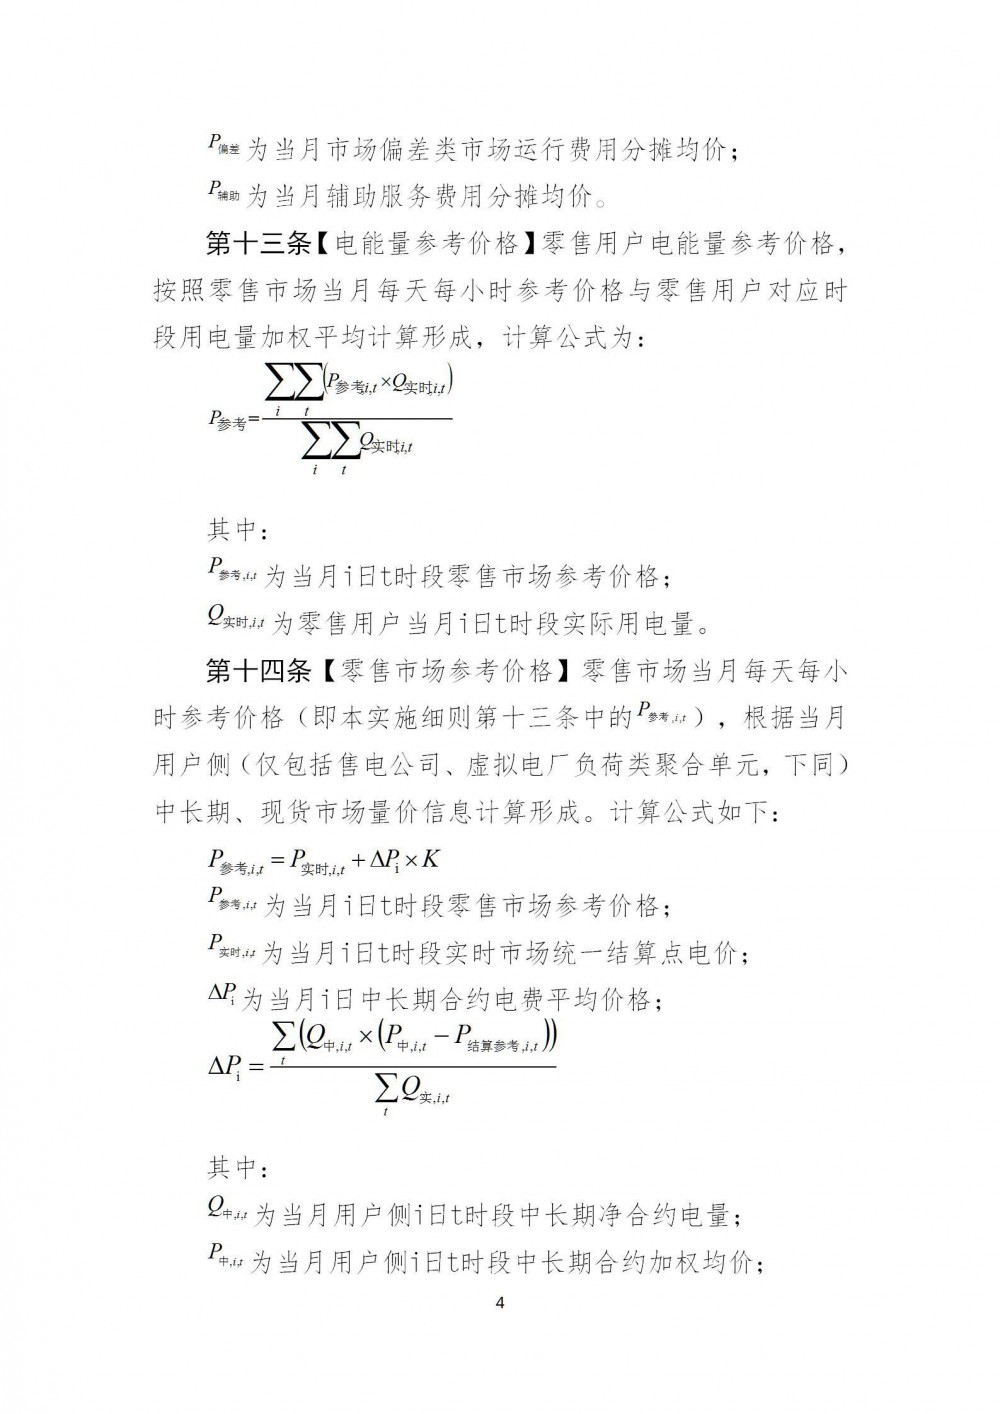 P偏差 为当月市场偏差类市场运行费用分摊均价；
P辅助 为当月辅助服务费用分摊均价。
第十三条【电能量参考价格】零售用户电能量参考价格，
按照零售市场当月每天每小时参考价格与零售用户对应时
段用电量加权平均计算形成，计算公式为：
P参考=∑i∑t(P参考,i,t×Q实时,i,t)/∑i∑tQ实时,i,t
其中：
P参考,i,t 为当月i日t时段零售市场参考价格；
Q实时,i,t 为零售用户当月i日t时段实际用电量。
第十四条【零售市场参考价格】零售市场当月每天每小
时参考价格（即本实施细则第十三条中的P参考,i,t），根据当月
用户侧（仅包括售电公司、虚拟电厂负荷类聚合单元，下同）
中长期、现货市场量价信息计算形成。计算公式如下：
P参考,i,t = P实时,i,t + ΔPi × K
P参考,i,t 为当月i日t时段零售市场参考价格；
P实时,i,t 为当月i日t时段实时市场统一结算点电价；
ΔPi 为当月i日中长期合约电费平均价格；
ΔPi = ∑t(Q中,i,t × (P中,i,t − P结算参考,i,t))/∑tQ实,i,t
其中：
Q中,i,t 为当月用户侧i日t时段中长期净合约电量；
P中,i,t 为当月用户侧i日t时段中长期合约加权均价；
4